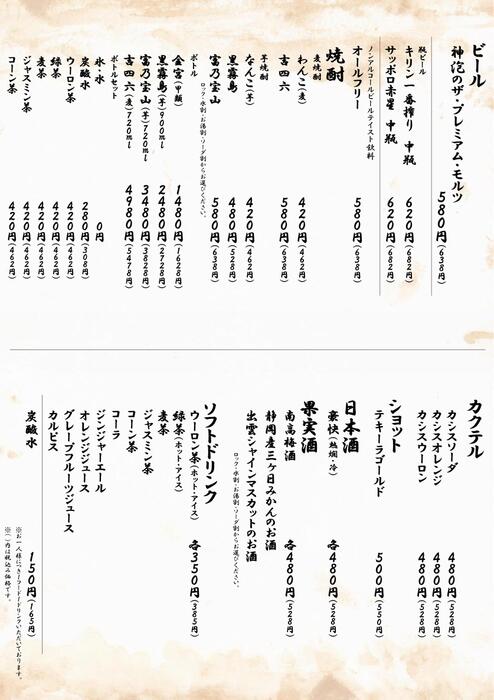 ビール
神泡のザ・プレミアム・モルツ 580円(638円)
瓶ビール
キリン一番搾り 中瓶 620円(682円)
サッポロ赤星 中瓶 620円(682円)
ノンアルコールビールテイスト飲料
オールフリー 580円(638円)
焼酎
麦焼酎
わんこ(麦) 420円(462円)
吉四六 580円(638円)
芋焼酎
なんこ(芋) 420円(462円)
黒霧島 480円(528円)
富乃宝山 580円(638円)
ロック・水割・お湯割・ソーダ割からお選びください。
ボトル
金宮(甲類) 1480円(1628円)
黒霧島(芋)900ml 2480円(2728円)
富乃宝山(芋)720ml 3480円(3828円)
吉四六(麦)720ml 4980円(5478円)
ボトルセット
氷・水 0円
炭酸水 280円(308円)
ウーロン茶 420円(462円)
緑茶 420円(462円)
麦茶 420円(462円)
ジャスミン茶 420円(462円)
コーン茶 420円(462円)
カクテル
カシスソーダ 480円(528円)
カシスオレンジ 480円(528円)
カシスウーロン 480円(528円)
ショット
テキーラゴールド 500円(550円)
日本酒
豪快(熱燗・冷) 各480円(528円)
果実酒
南高梅酒 各480円(528円)
静岡産三ヶ日みかんのお酒
出雲シャインマスカットのお酒
ロック・水割・お湯割・ソーダ割からお選びください。
ソフトドリンク
ウーロン茶(ホット・アイス) 各350円(385円)
緑茶(ホット・アイス)
麦茶
ジャスミン茶
コーン茶
コーラ
ジンジャーエール
オレンジジュース
グレープフルーツジュース
カルピス
炭酸水 150円(165円)
※お一人様につき1フード1ドリンクいただいております。
※( )内は税込み価格です。